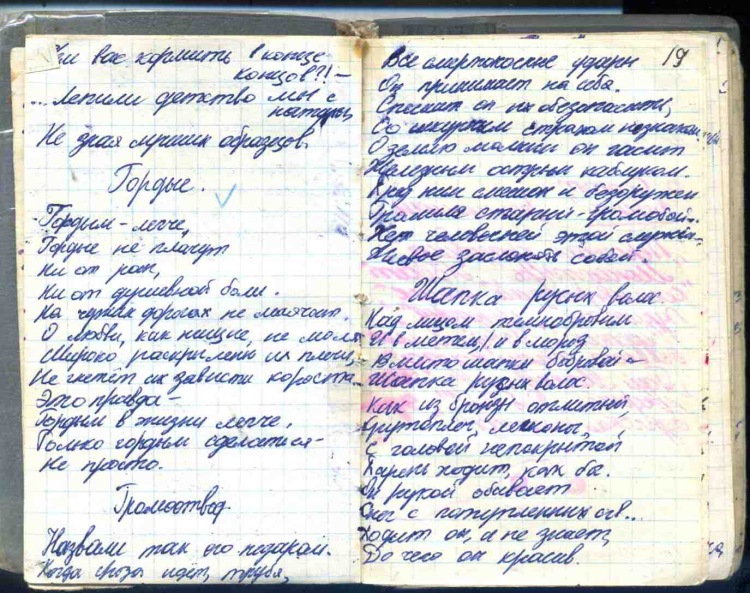 вас кормить в конце
концов?! —
... Лепили детство мы с
натуры,
Не зная лучших образцов.
Гордые.
Гордым - легче,
Гордые не плачут
Ни от ран,
Ни от душевной боли.
На чужих дорогах не маячат,
О любви, как нищие, не молят
Широко раскрылены их плечи,
Не гнетёт их зависти короста
Это правда -
Гордым в жизни легче,
Только гордым сделаться -
не просто.
Громоотвод
Назвали так его недаром.
Когда гроза идет, трубя,
19
Все смертоносные удары
Он принимает на себя.
Спешит он их обезопасить,
Со шкурным страхом незнаком.
О землю молнии он гасит
Железным острым каблуком.
Пред ним смешон и безоружен
Громила старый - громобой.
Нет человечней этой службы -
Живое заслонять собой.
Шапка русых волос.
Над лицом темнобровым
И в метель, и в мороз
Вместо шапки бобровой -
Шапка русых волос.
Как из бронзы отлитый,
Крутоплеч, легконог,
С головой непокрытой
Парень ходит, как бог.
Он рукой сбивает
Снег с
Ходит он, и не знает,
До чего он красив.